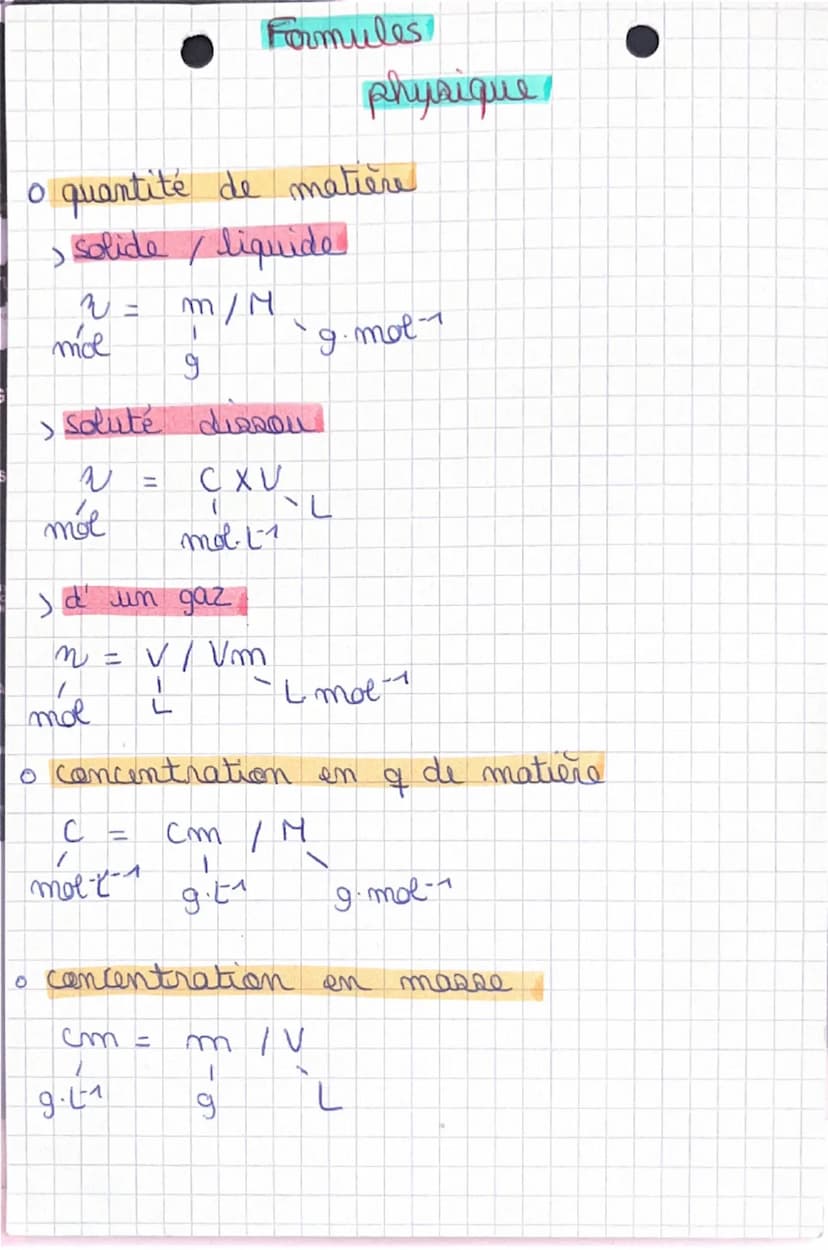 Formules
physique
o quantité de matière
> solide / liquide
n = m / M
mol g g.mol-1
> soluté dissou
n = C x V
mol mol.L-1 L
> d'un gaz
n = V / Vm
mol L L mol-1
o concentration en q de matière
C = Cm / M
mol.L-1 g.L-1 g.mol-1
o concentration en masse
Cm = m / V
g.L-1 g L